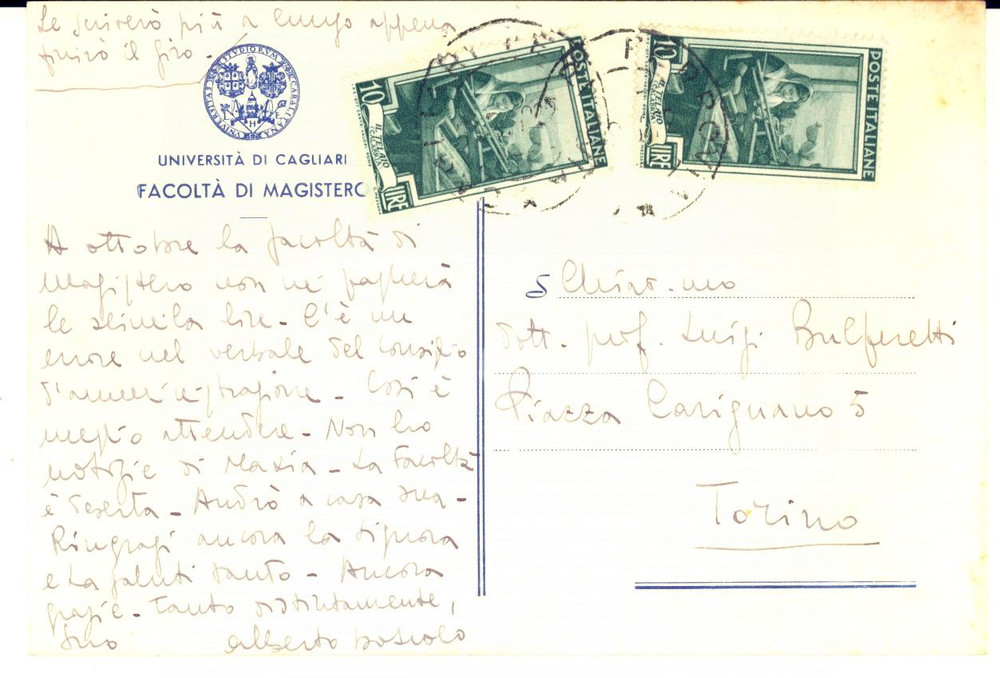 Le scriverò più a lungo appena
finirò il giro -
UNIVERSITÀ DI CAGLIARI
FACOLTÀ DI MAGISTERO
A ottobre la facoltà di
Magistero non mi pagherà
le seimila lire - C'è un
errore nel verbale del Consiglio
d'amministrazione - Così è
meglio attendere - Non ho
notizie di Maxia - La Facoltà
è deserta - Andrò a casa sua -
Ringrazi ancora la Signora
e La saluti tanto - Ancora
grazie - Tanto distintamente,
Suo Alberto Boscolo
POSTE ITALIANE
10
IL TELAIO
LIRE
POSTE ITALIANE
10
IL TELAIO
LIRE
Chiar.mo
dott. prof. Luigi Bulferetti
Piazza Carignano 5
Torino